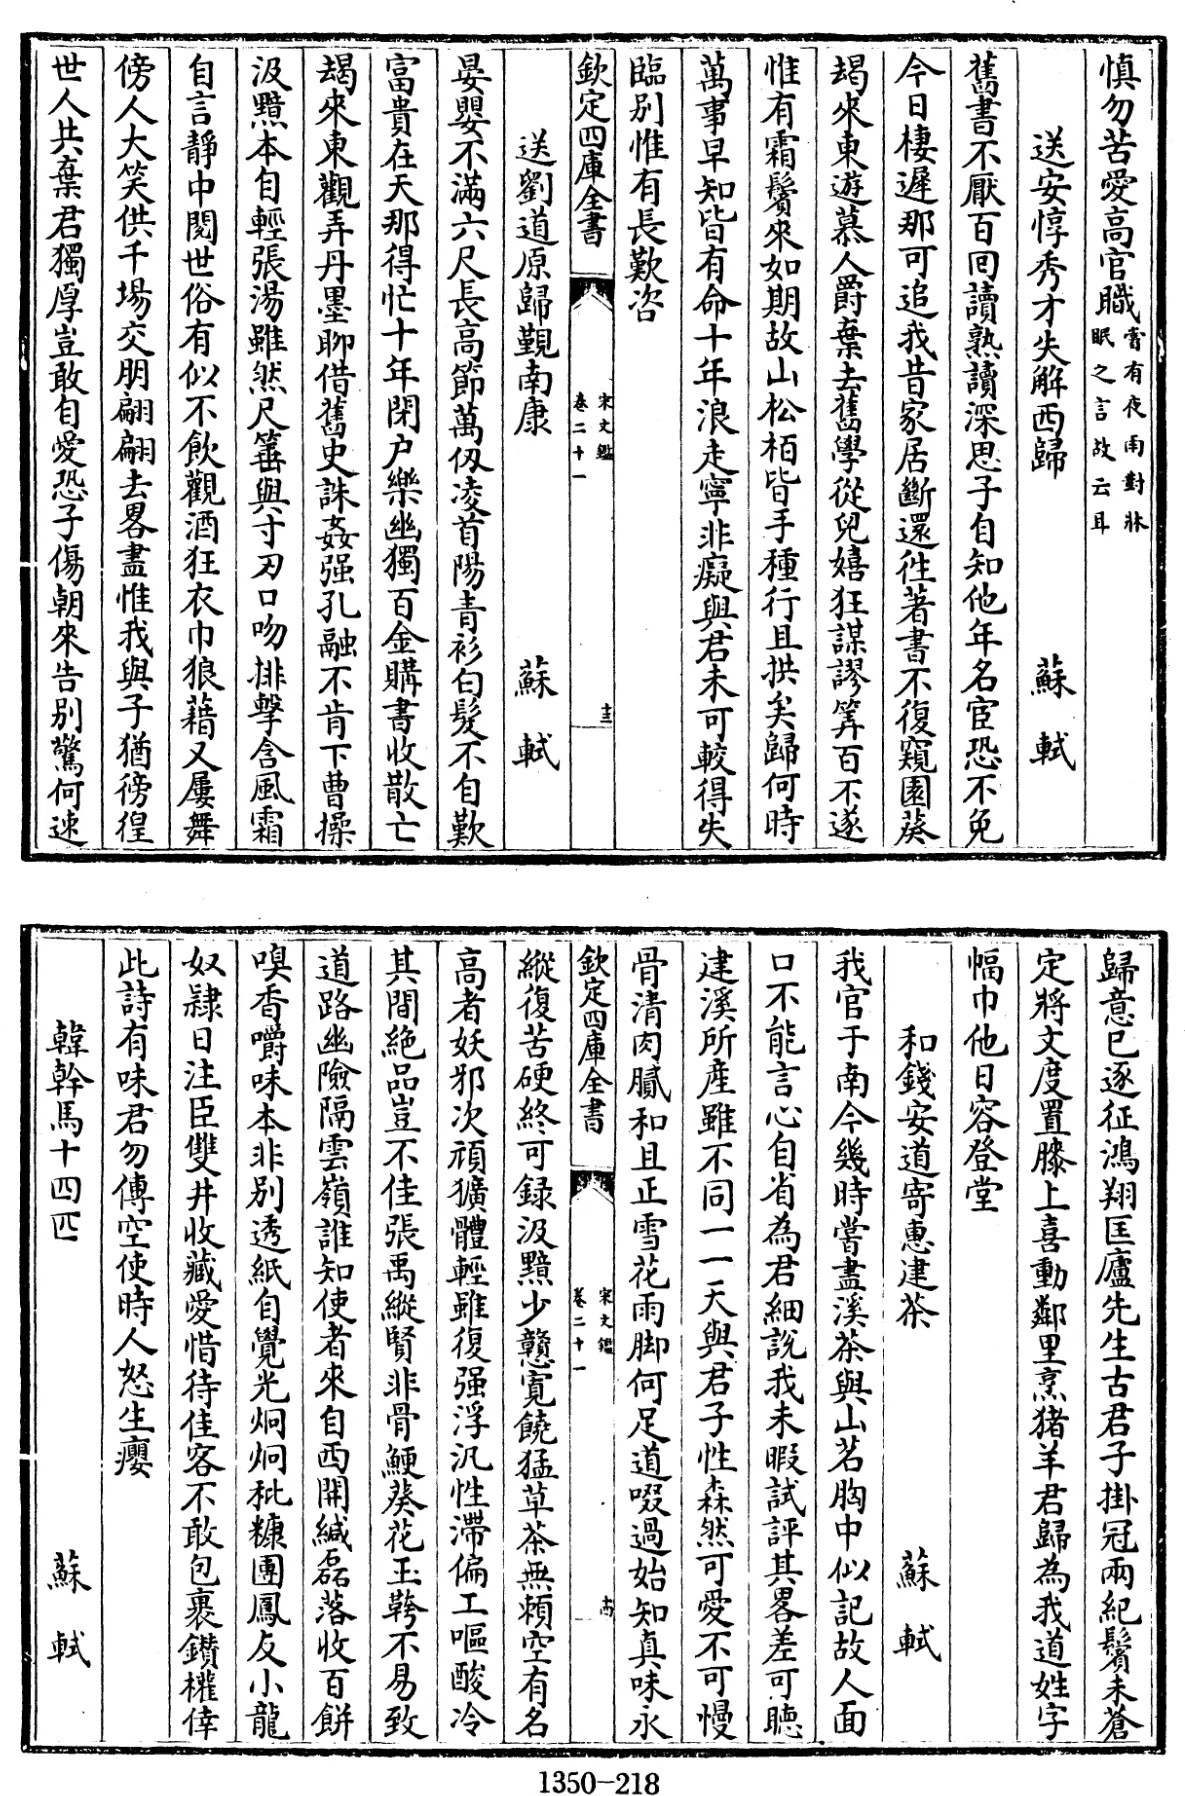 慎勿苦愛高官職嘗有夜雨對牀眠之言故云耳
送安惇秀才失解西歸 蘇軾
舊書不厭百囘讀熟讀深思子自知他年名宦恐不免
今日棲遲那可追我昔家居斷還往著書不復窺園葵
朅來東遊慕人爵棄去舊學從兒嬉狂謀謬筭百不遂
惟有霜鬢來如期故山松栢皆手種行且拱矣歸何時
萬事早知皆有命十年浪走寧非癡與君未可較得失
臨別惟有長歎咨
欽定四庫全書 宋文鑑卷二十一 十三
送劉道原歸覲南康 蘇軾
晏嬰不滿六尺長高節萬仭凌首陽青衫白髮不自歎
富貴在天那得忙十年閉户樂幽獨百金購書收散亡
朅來東觀弄丹墨聊借舊史誅姦强孔融不肯下曹操
汲黯本自輕張湯雖然尺箠與寸刃口吻排擊含風霜
自言靜中閱世俗有似不飲觀酒狂衣巾狼藉又屢舞
傍人大笑供千場交朋翩翩去畧盡惟我與子猶徬徨
世人共棄君獨厚豈敢自愛恐子傷朝來告別驚何速
歸意已逐征鴻翔匡廬先生古君子掛冠兩紀鬢未蒼
定將文度置膝上喜動鄰里烹猪羊君歸為我道姓字
幅巾他日容登堂
和錢安道寄惠建茶 蘇軾
我官于南今幾時嘗盡溪茶與山茗胸中似記故人面
口不能言心自省為君細說我未暇試評其畧差可聽
建溪所産雖不同一一天與君子性森然可愛不可慢
骨清肉膩和且正雪花雨脚何足道啜過始知真味永
欽定四庫全書 宋文鑑卷二十一 十四
縱復苦硬終可録汲黯少戇寛饒猛草茶無頼空有名
高者妖邪次頑獷體輕雖復强浮汎性滯偏工嘔酸冷
其間絶品豈不佳張禹縱賢非骨鯁葵花玉䩞不易致
道路幽險隔雲嶺誰知使者來自西開緘磊落收百餅
嗅香嚼味本非別透紙自覺光炯炯秕糠團鳳友小龍
奴隸日注臣雙井收藏愛惜待佳客不敢包裹鑽權倖
此詩有味君勿傳空使時人怒生癭
韓幹馬十四匹 蘇軾
1350-218